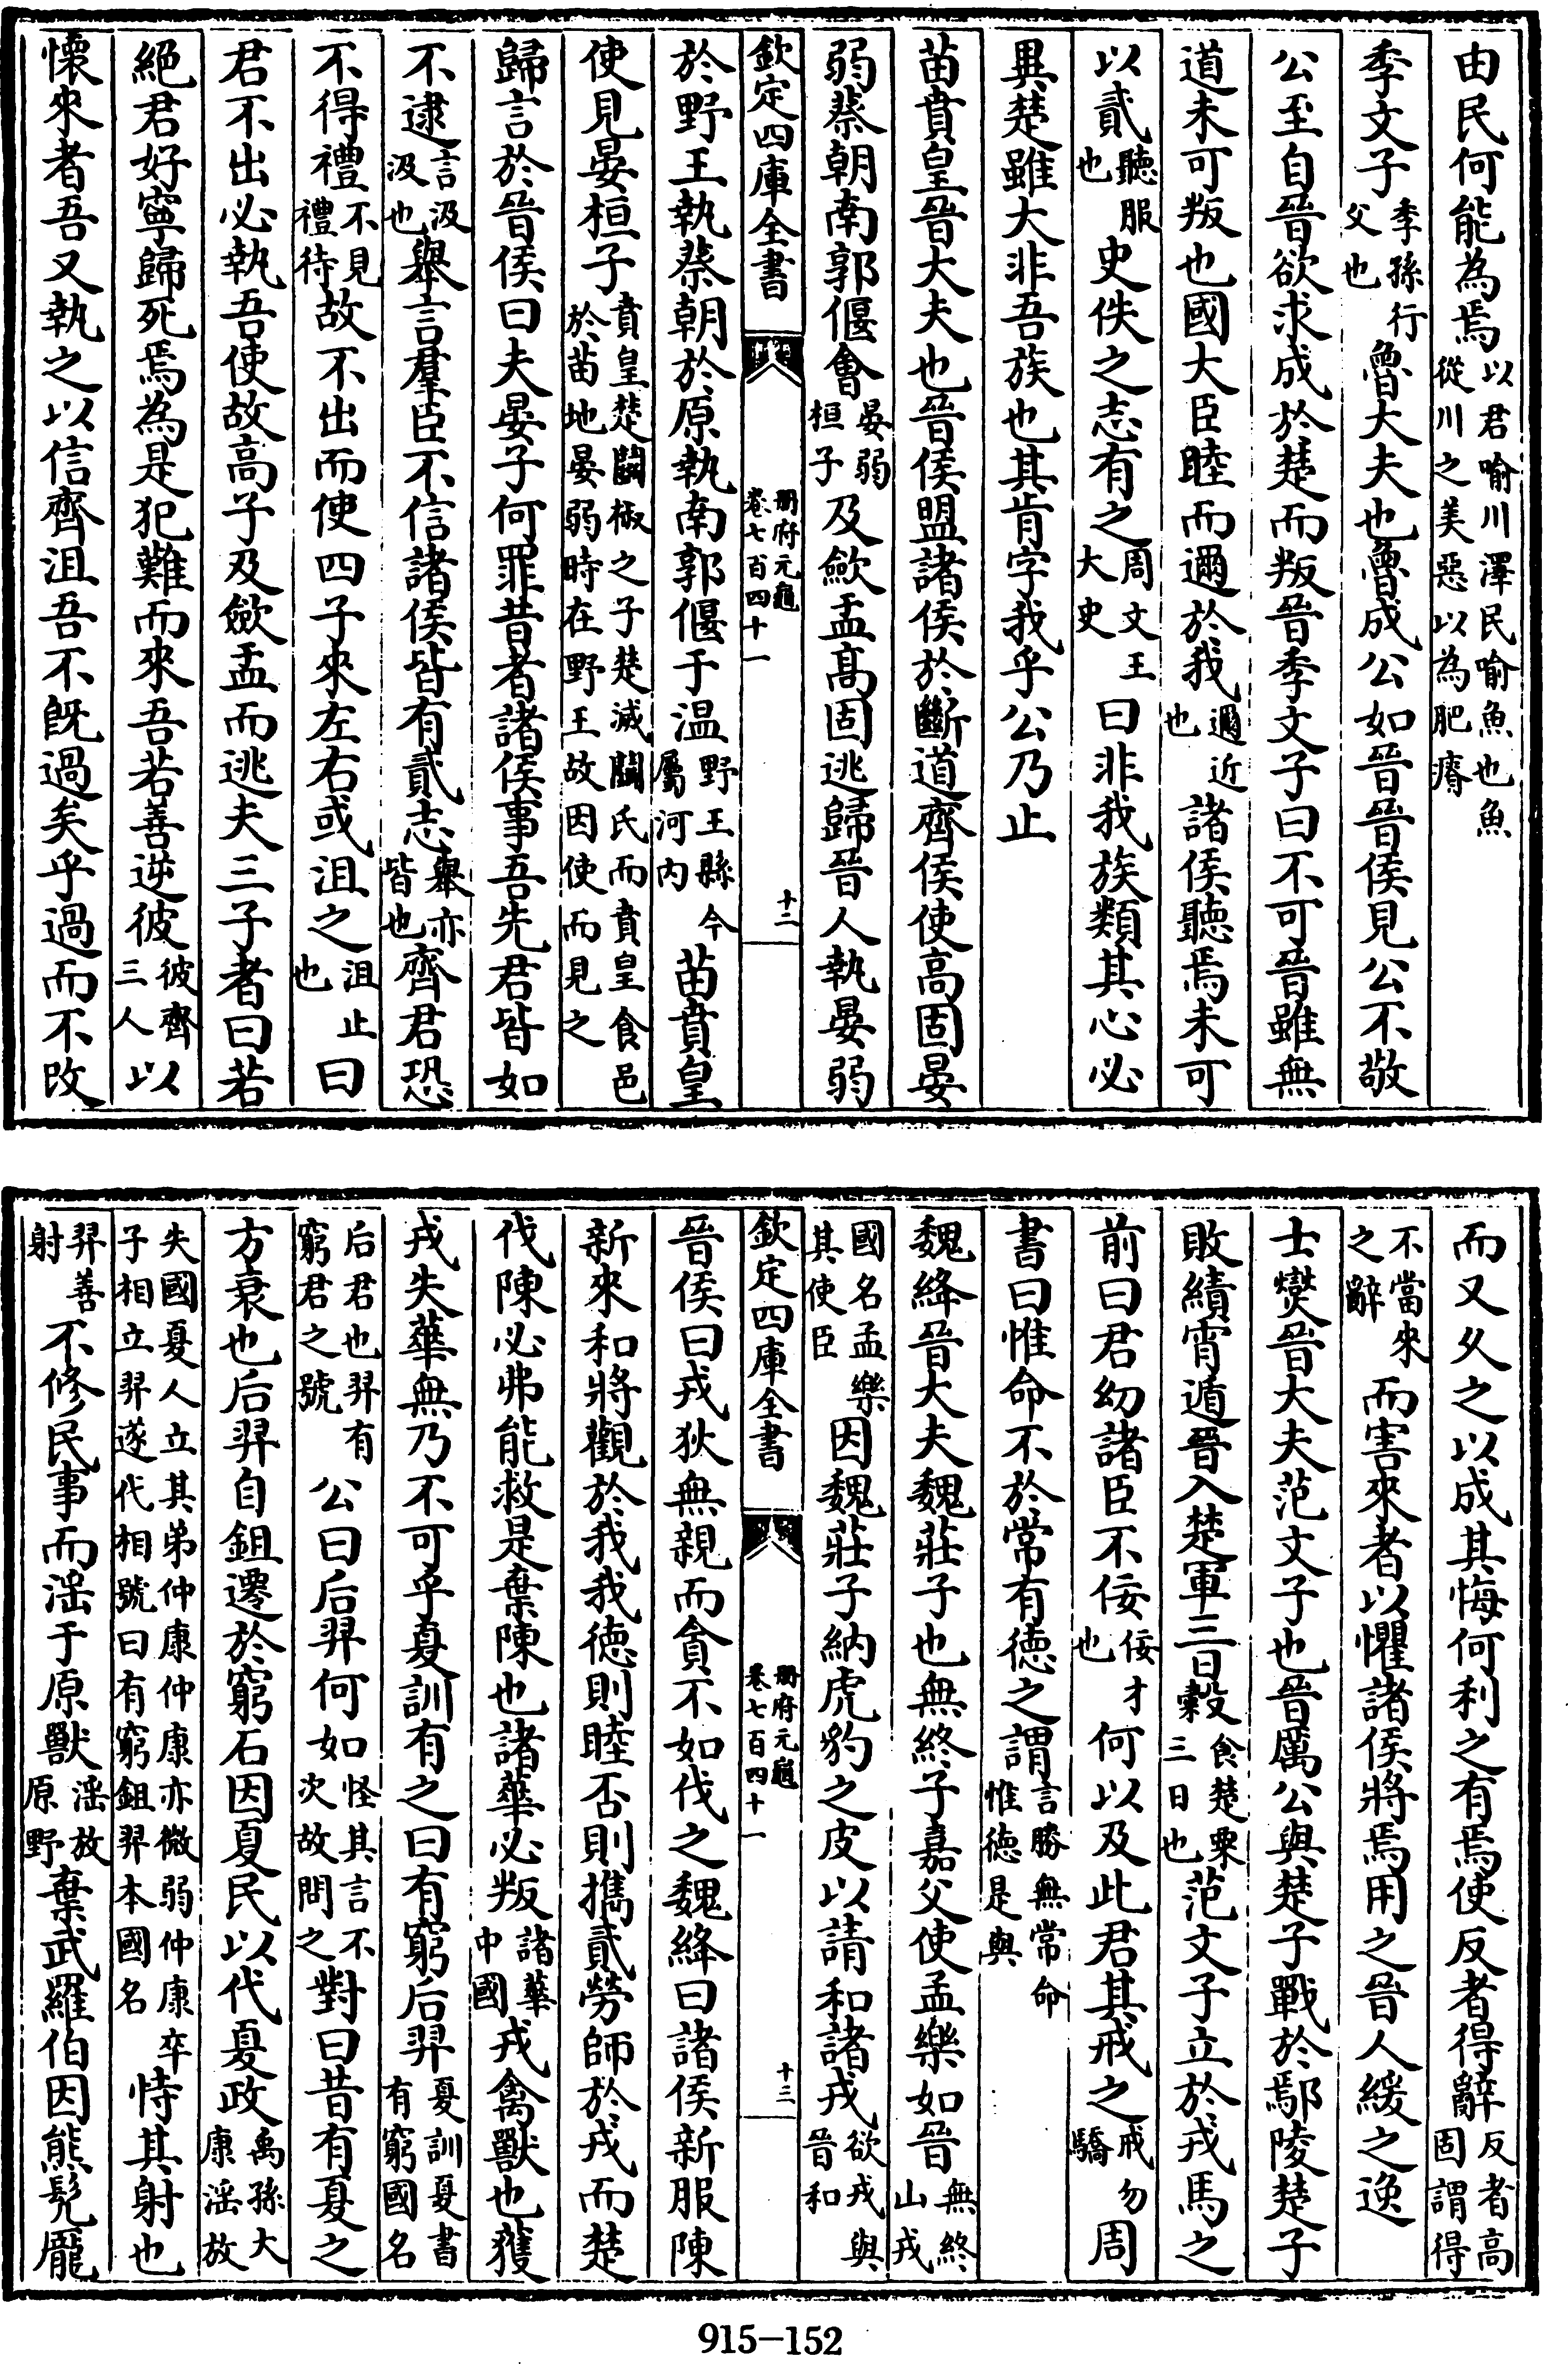 由民何能為焉以君喻川澤民喻魚也魚從川之美惡以為肥瘠
季文子季孫行父也魯大夫也魯成公如晉晉侯見公不敬
公至自晉欲求成於楚而叛晉季文子曰不可晉雖無
道未可叛也國大臣睦而邇於我邇近也諸侯聽焉未可
以貳聽服也史佚之志有之周文王大史曰非我族類其心必
異楚雖大非吾族也其肯字我乎公乃止
苗賁皇晉大夫也晉侯盟諸侯於斷道齊侯使高固晏
弱蔡朝南郭偃會晏弱桓子及歛盂高固逃歸晉人執晏弱
欽定四庫全書 冊府元龜卷七百四十一 十二
於野王執蔡朝於原執南郭偃于温野王縣今屬河内苗賁皇
使見晏桓子賁皇楚鬭椒之子楚滅鬭氏而賁皇食邑於苗地晏弱時在野王故因使而見之
歸言於晉侯曰夫晏子何罪昔者諸侯事吾先君皆如
不逮言汲汲也舉言羣臣不信諸侯皆有貳志舉亦皆也齊君恐
不得禮不見禮待故不出而使四子來左右或沮之沮止也曰
君不出必執吾使故高子及歛盂而逃夫三子者曰若
絕君好寧歸死焉為是犯難而來吾若善逆彼彼齊三人以
懷來者吾又執之以信齊沮吾不既過矣乎過而不改
而又久之以成其悔何利之有焉使反者得辭反者高固謂得
不當來之辭而害來者以懼諸侯將焉用之晉人緩之逸
士燮晉大夫范文子也晉厲公與楚子戰於鄢陵楚子
敗績宵遁晉入楚軍三日穀食楚粟三日也范文子立於戎馬之
前曰君幼諸臣不佞佞才也何以及此君其戒之戒勿驕周
書曰惟命不於常有德之謂言勝無常命惟德是與
魏絳晉大夫魏莊子也無終子嘉父使孟樂如晉無終山戎
國名孟樂其使臣因魏莊子納虎豹之皮以請和諸戎欲戎與晉和
欽定四庫全書 冊府元龜卷七百四十一 十三
晉侯曰戎狄無親而貪不如伐之魏絳曰諸侯新服陳
新來和將觀於我我德則睦否則攜貳勞師於戎而楚
伐陳必弗能救是棄陳也諸華必叛諸華中國戎禽獸也獲
戎失華無乃不可乎夏訓有之曰有窮后羿夏訓夏書有窮國名
后君也羿有窮君之號公曰后羿何如怪其言不次故問之對曰昔有夏之
方衰也后羿自鉏遷於窮石因夏民以代夏政禹孫大康淫放
失國夏人立其弟仲康仲康亦微弱仲康卒子相立羿遂代相號曰有窮鉏羿本國名恃其射也
羿善射不修民事而淫于原獸淫放原野棄武羅伯因熊髠厖
915-152